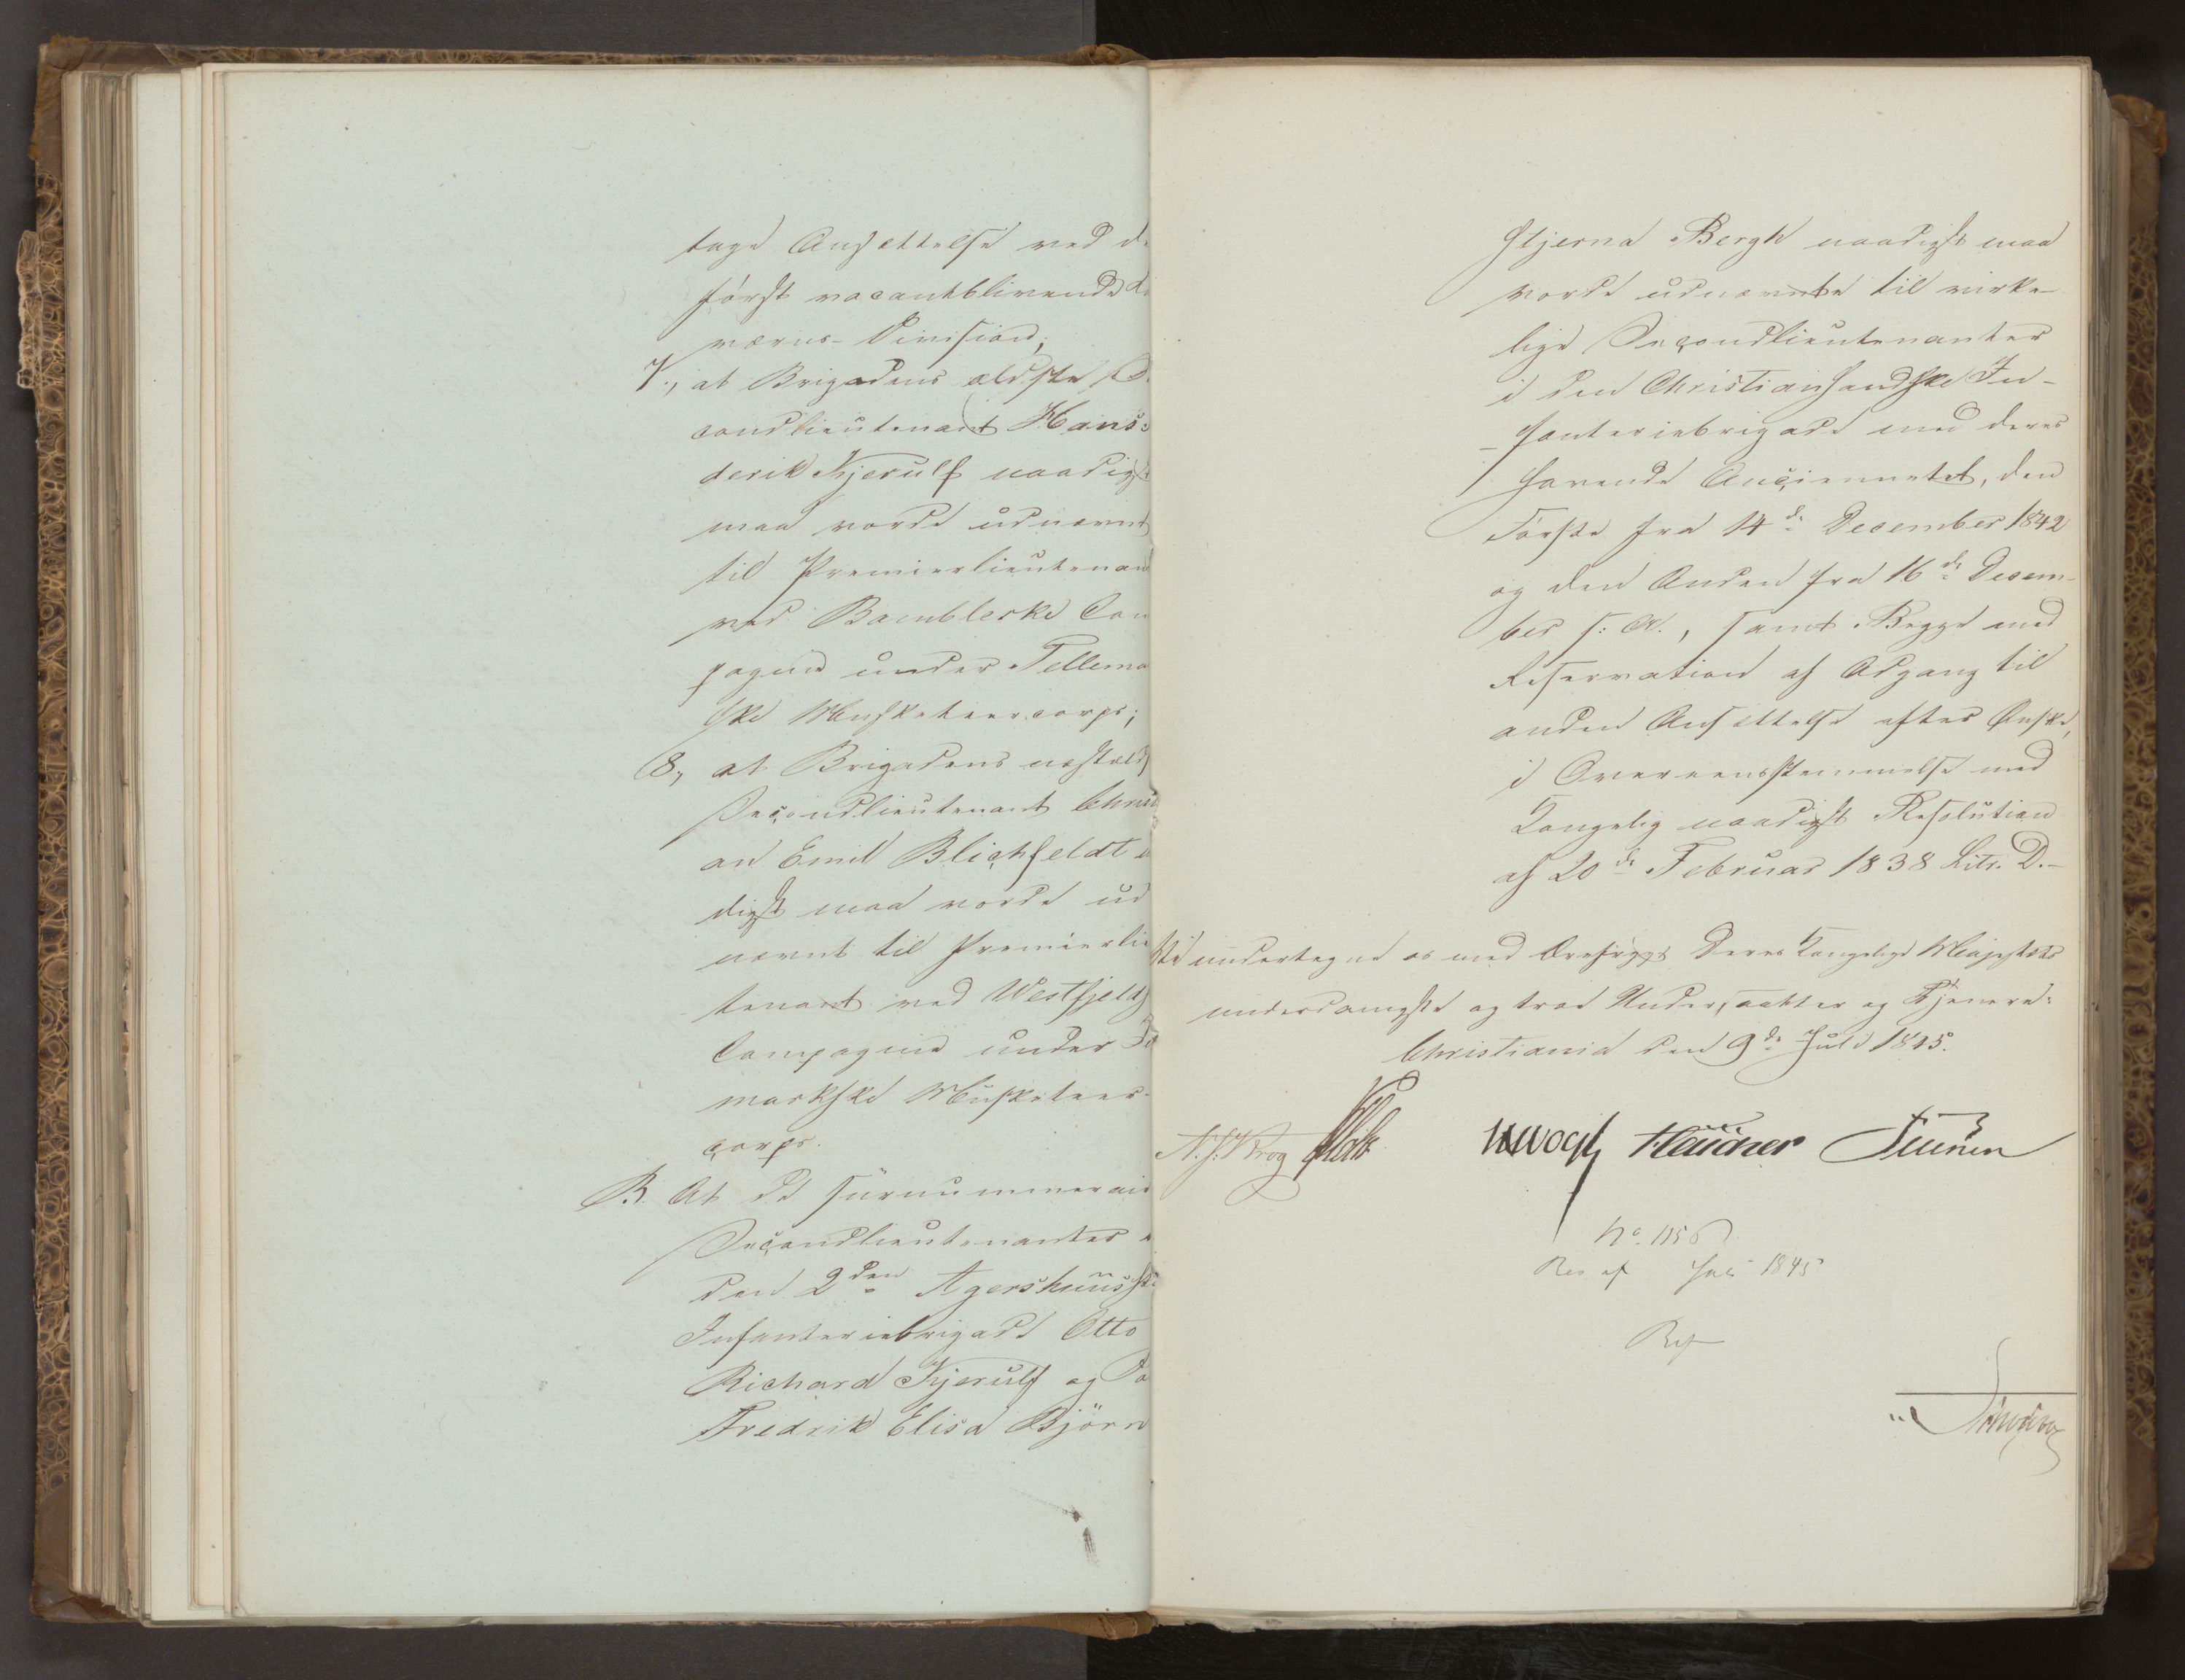 tage Ansættelse ved d
først vacantblivende
værns-Division;
7., at Brigadens ældste
condlieutenant Hans
derik Kjerulf naadigst
maa vorde udnævnt
til Premierlieutenant
ved Bambleske Com
pagnie under Tellema
ske Musketeercorps;
8., at Brigadens næstæld
Secondlieutenant Christ
an Emil Blichfeldt
digst maa vorde ud
nævnt til Premierlie
tenant ved Westfjeld
Compagnie under
markske Musketeer-
corps.
B. At de surnummerair
Secondlieutenanter
den 2den Agershuuske
Infanteriebrigade Otto
Richard Kjerulf og
Fredrik Elisa Björn
Stjerna Bergh naadigst maa
vorde udnævnte til virke-
lige Secondlieutenanter
i den Christiansandske In-
fanteriebrigade med deres
havende Anciennetet, den
Første fra 14de December 1842
og den Anden fra 16de Decem-
ber s: A., samt Begge med
Reservation af Adgang til
anden Ansættelse efter Ønske,
i Overeensstemmelse med
Kongelig naadigst Resolution
af 20de Februar 1838 Litr. D.-
Vi undertegne os med Ærefrygt Deres Kongelige Majestæts
underdanigste og troe Undersaatter og Tjenere:
Christiania den 9de Juli 1845.
N. J. Krog Holst Vogt
No. 1156
Res af Juli 1845